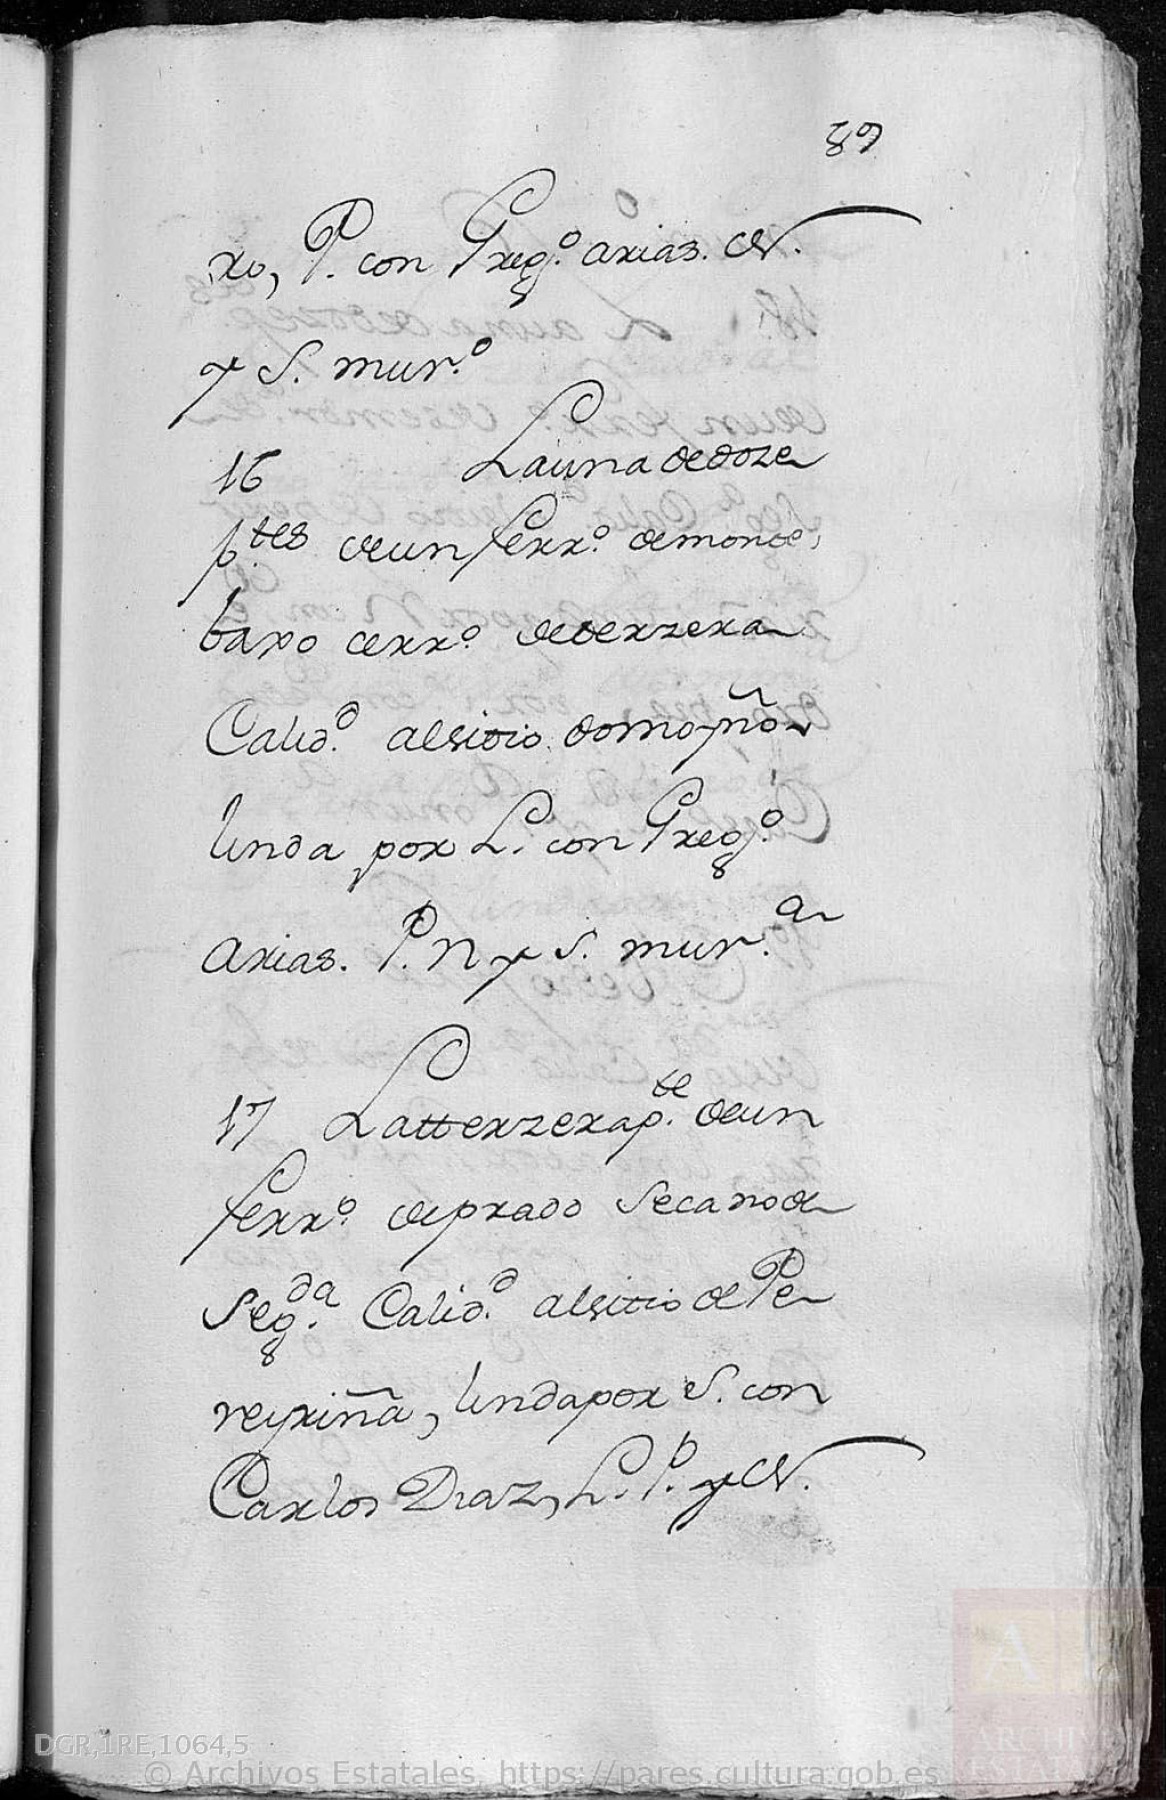 89
ro, P. con Greg.º arias. N.
y S. mur.º
16 La una de doze
p.tes de un ferr.º de monte
baxo cerr.º de terzera
Calid.d al sitio do moyño
linda por L. con Greg.º
arias. P. N y S. mur.a
17 La tterzera p.te de un
ferr.º de prado secano de
Seg.da Calid.d al sitio de Pe
reyriña, linda por S. con
Carlos Diaz, L. P. y N.
DGR,1RE,1064,5
© Archivos Estatales, https://pares.cultura.gob.es
ARCHIV
ESTATA